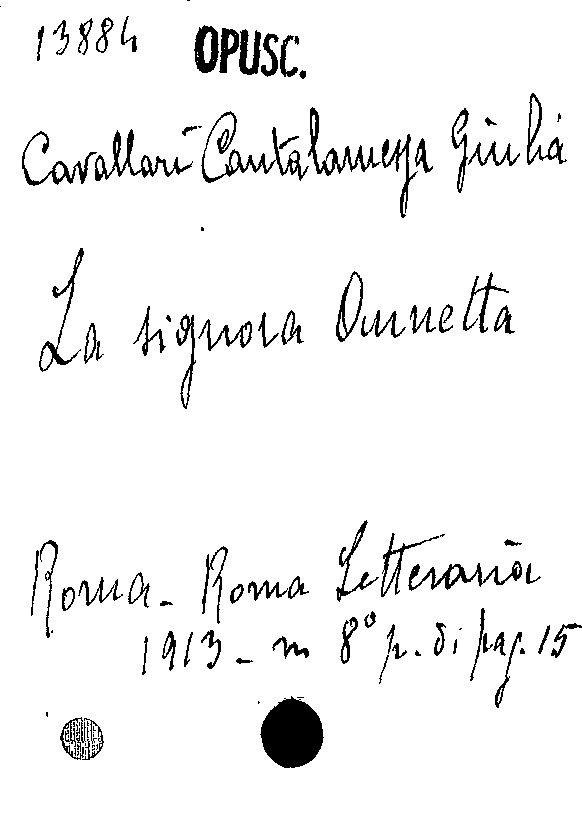 13884 OPUSC.
Cavallari-Cantalamessa Giulia
La signora Ounetta
Roma - Roma Letteraria
1913 - in 8° p. di pag. 15